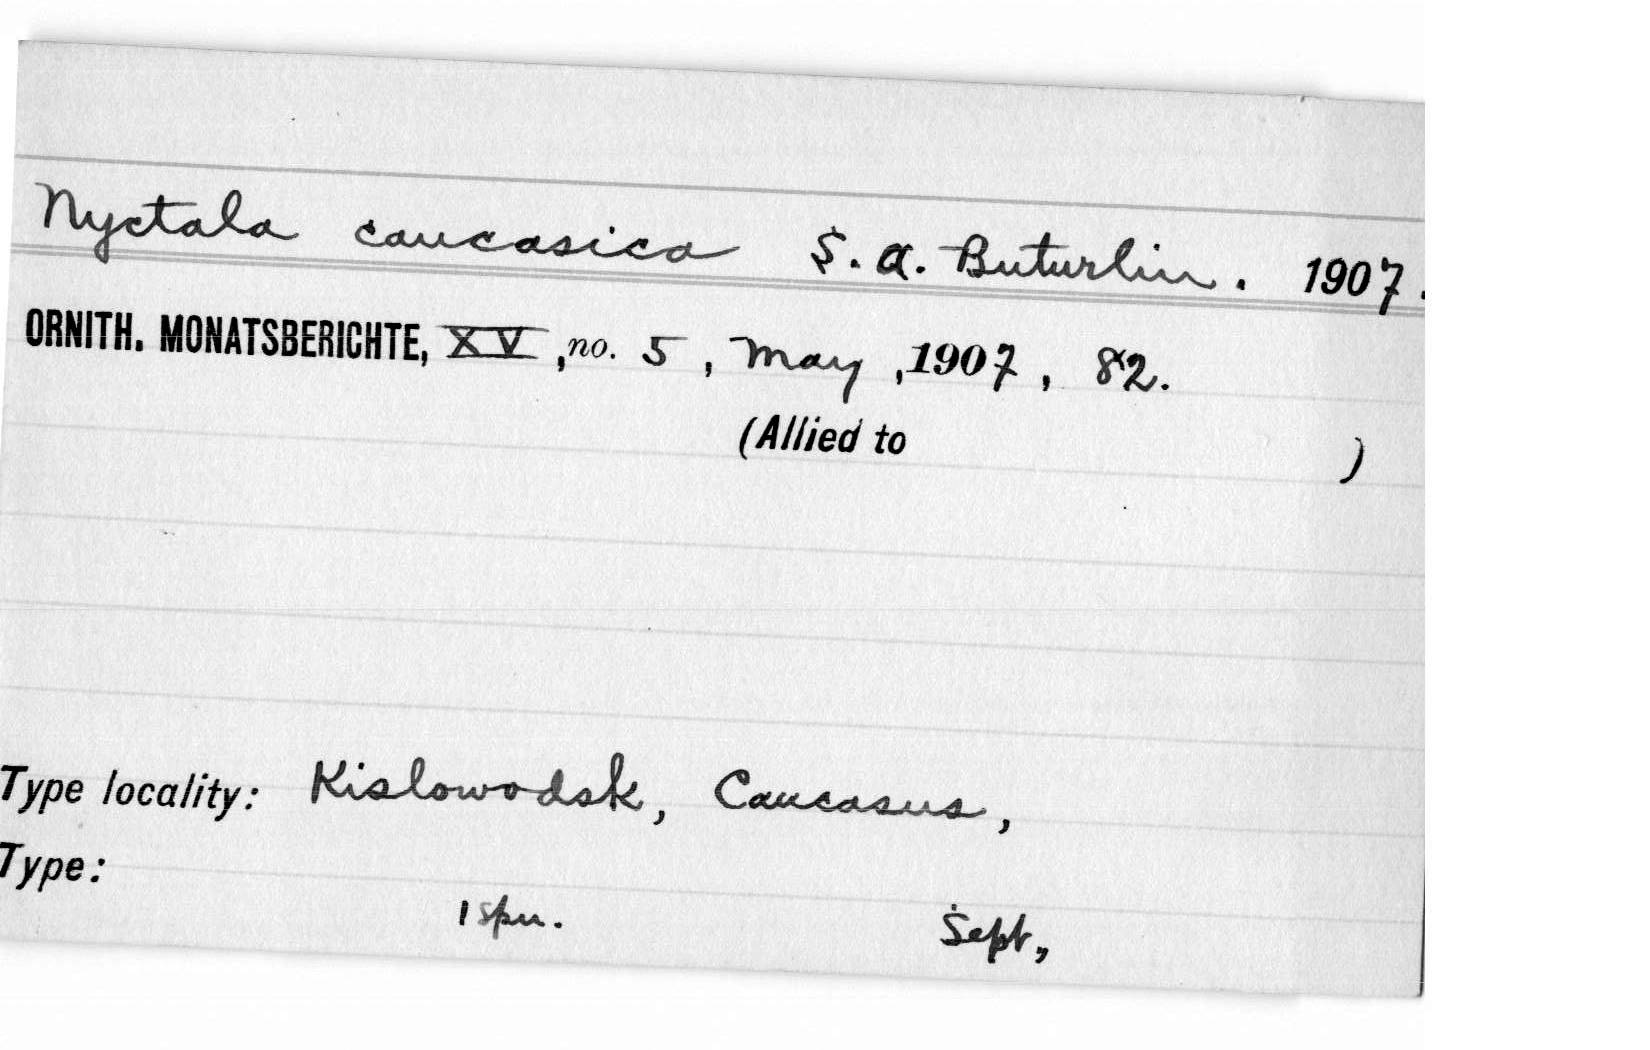 Nyctala caucasica S. A. Buturlin. 1907.
ORNITH. MONATSBERICHTE, XV, no. 5, May, 1907, 82.
(Allied to )
Type locality: Kislowodsk, Caucasus,
Type:
1 spn. Sept.,